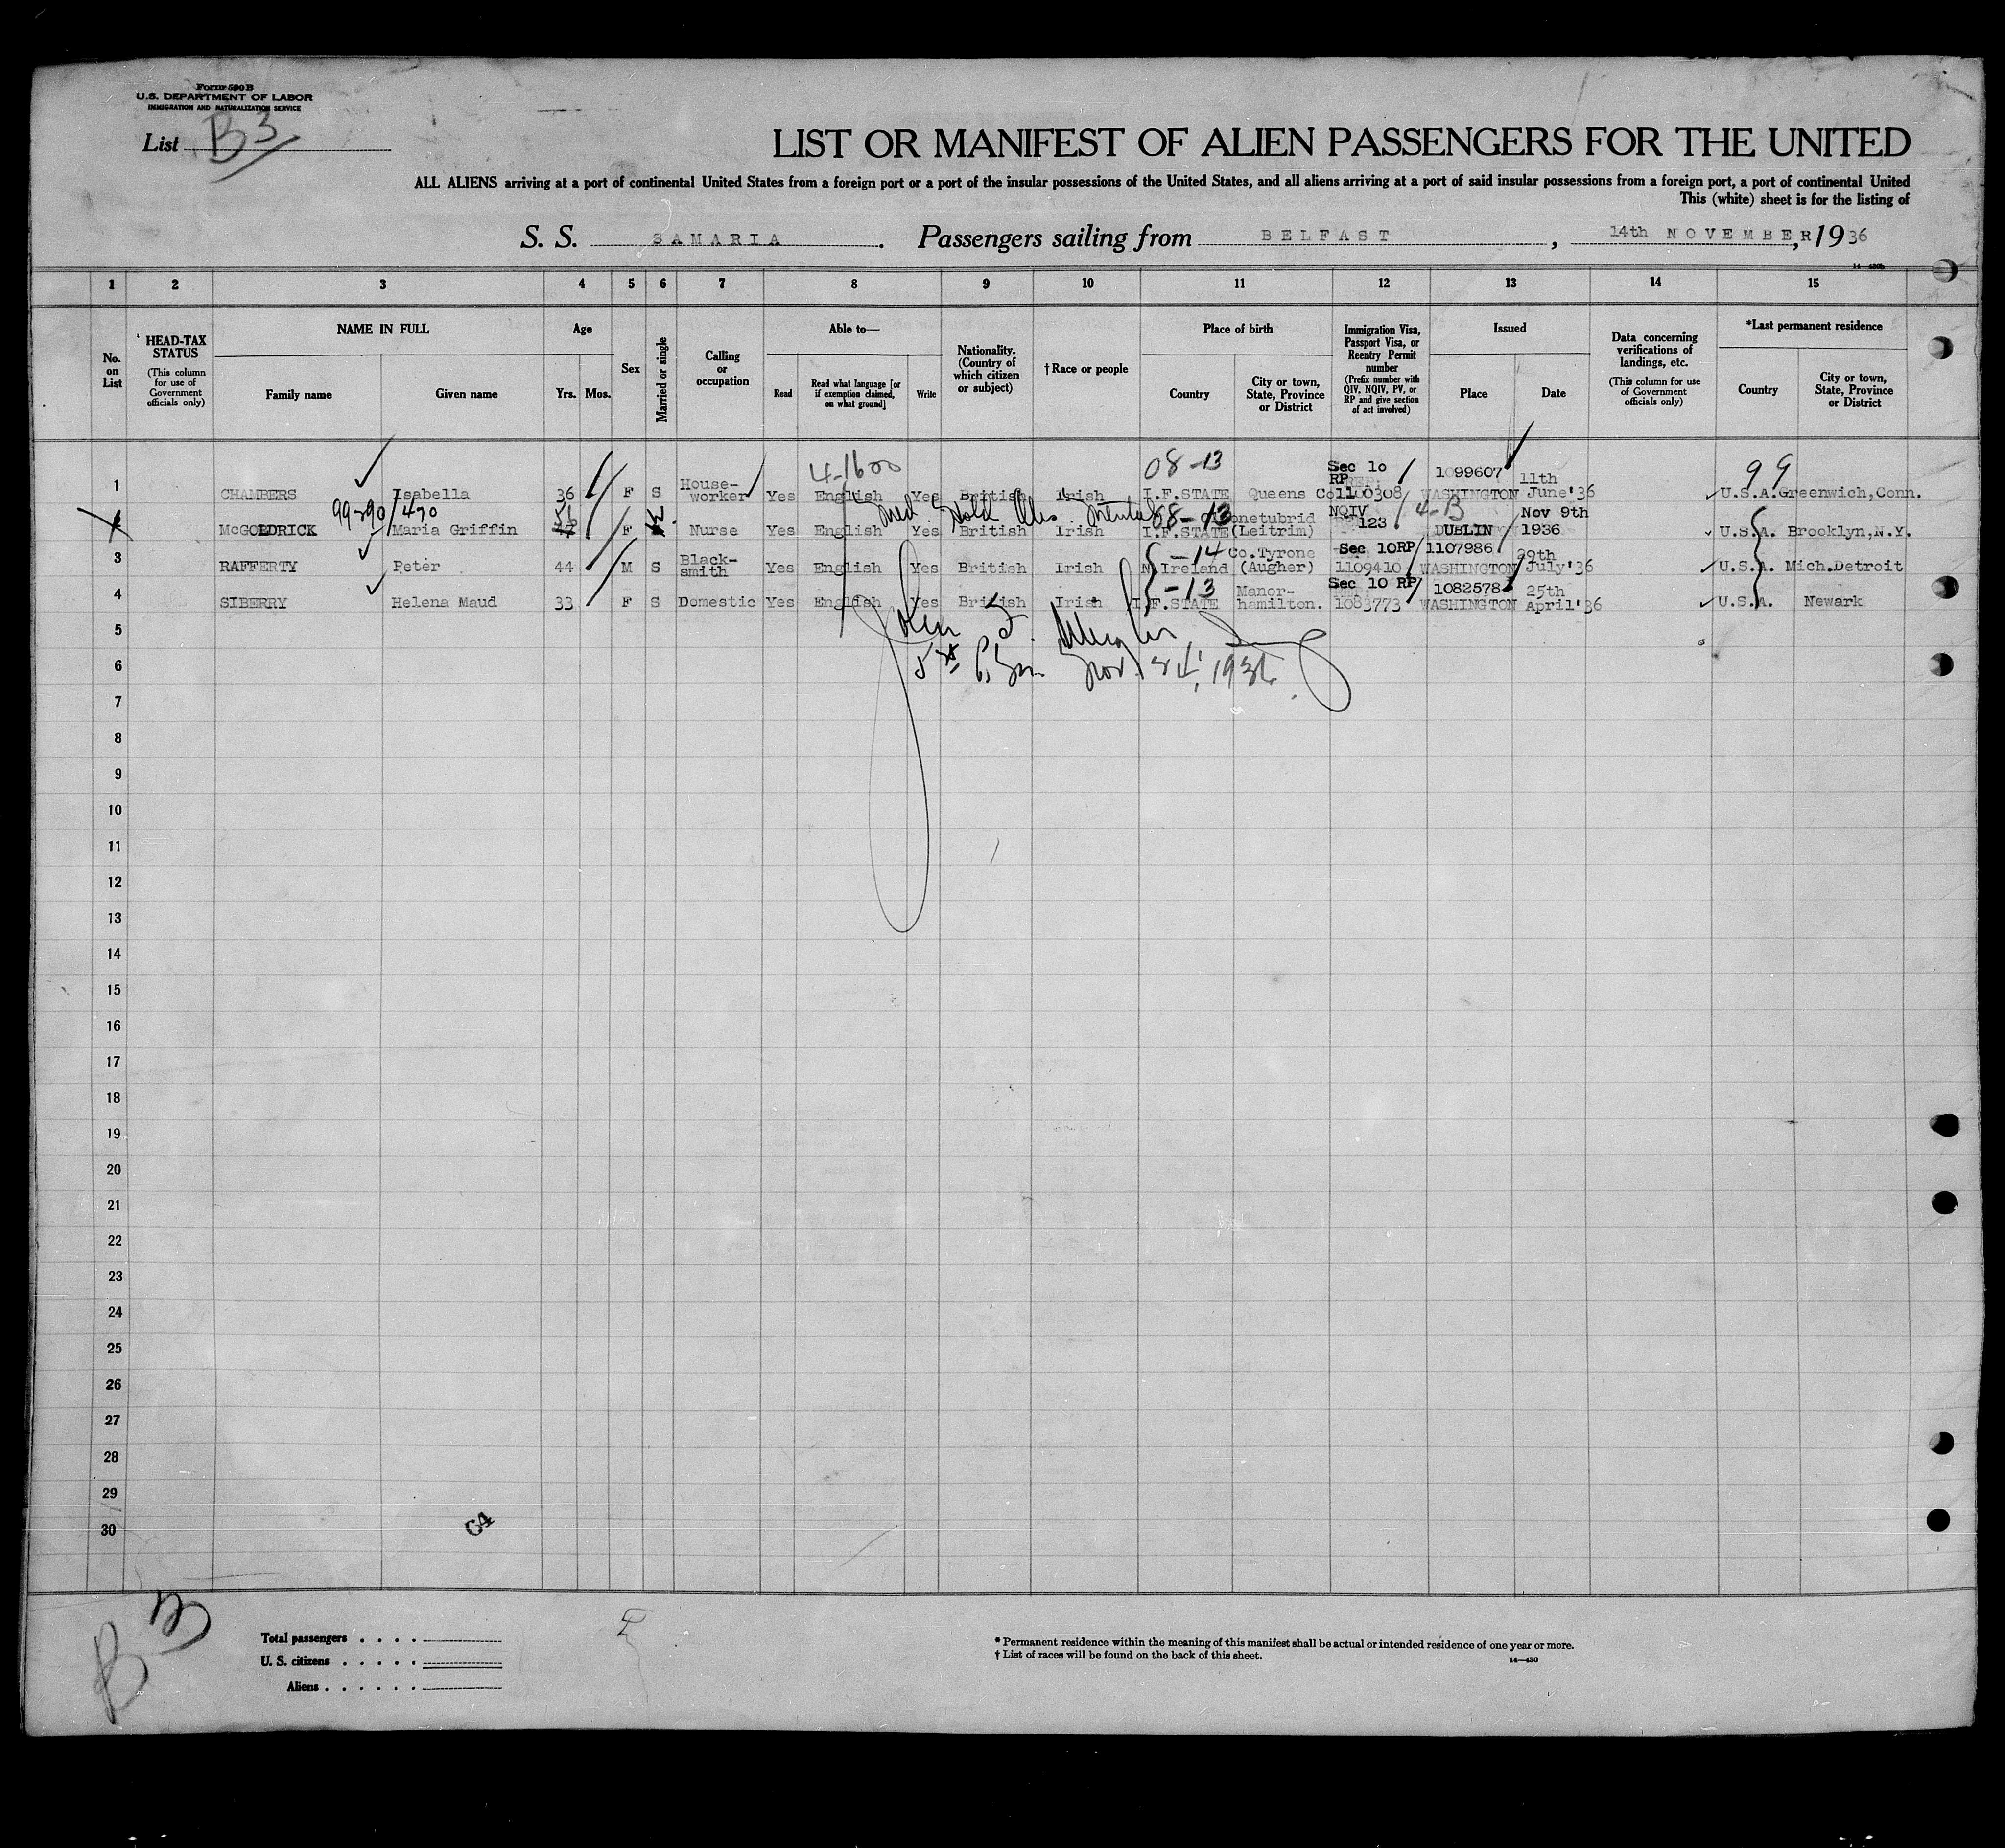 Form 500 B
U.S. DEPARTMENT OF LABOR
IMMIGRATION AND NATURALIZATION SERVICE
List B3
LIST OR MANIFEST OF ALIEN PASSENGERS FOR THE UNITED
ALL ALIENS arriving at a port of continental United States from a foreign port or a port of the insular possessions of the United States, and all aliens arriving at a port of said insular possessions from a foreign port, a port of continental United
This (white) sheet is for the listing of
S. S. SAMARIA. Passengers sailing from BELFAST, 14th NOVEMBER, 1936
1 2 3 4 5 6 7 8 9 10 11 12 13 14 15
No. on List
HEAD-TAX STATUS
(This column for use of Government officials only)
NAME IN FULL
Family name Given name
Age
Yrs. Mos.
Sex
Married or single
Calling or occupation
Able to—
Read Read what language [or if exemption claimed, on what ground] Write
Nationality. (Country of which citizen or subject)
† Race or people
Place of birth
Country City or town, State, Province or District
Immigration Visa, Passport Visa, or Reentry Permit number
(Prefix number with QIV, NQIV, PV, or RP and give section of act involved)
Issued
Place Date
Data concerning verifications of landings, etc.
(This column for use of Government officials only)
*Last permanent residence
Country City or town, State, Province or District
4-1600 08-13 99
1 CHAMBERS Isabella 36 F S House-worker Yes English Yes British Irish I.F.STATE Queens Co Sec 10 RP 1100308 1099607 WASHINGTON 11th June'36 U.S.A. Greenwich, Conn.
99290/490 Med. Hold Mental 08-13 4-13
McGOLDRICK Maria Griffin F Nurse Yes English Yes British Irish I.F.STATE (Leitrim) NQIV 123 DUBLIN Nov 9th 1936 U.S.A. Brooklyn, N.Y.
3 RAFFERTY Peter 44 M S Black-smith Yes English Yes British Irish N. Ireland -14 Co. Tyrone (Augher) Sec 10RP 1109410 1107986 WASHINGTON 29th July'36 U.S.A. Mich. Detroit
4 SIBERRY Helena Maud 33 F S Domestic Yes English Yes British Irish I.F.STATE -13 Manor-hamilton. Sec 10 RP 1083773 1082578 WASHINGTON 25th April'36 U.S.A. Newark
5
Nov. 24, 1936
6
7
8
9
10
11
12
13
14
15
16
17
18
19
20
21
22
23
24
25
26
27
28
29
30
B3
Total passengers
U. S. citizens
Aliens
* Permanent residence within the meaning of this manifest shall be actual or intended residence of one year or more.
† List of races will be found on the back of this sheet.
14—430